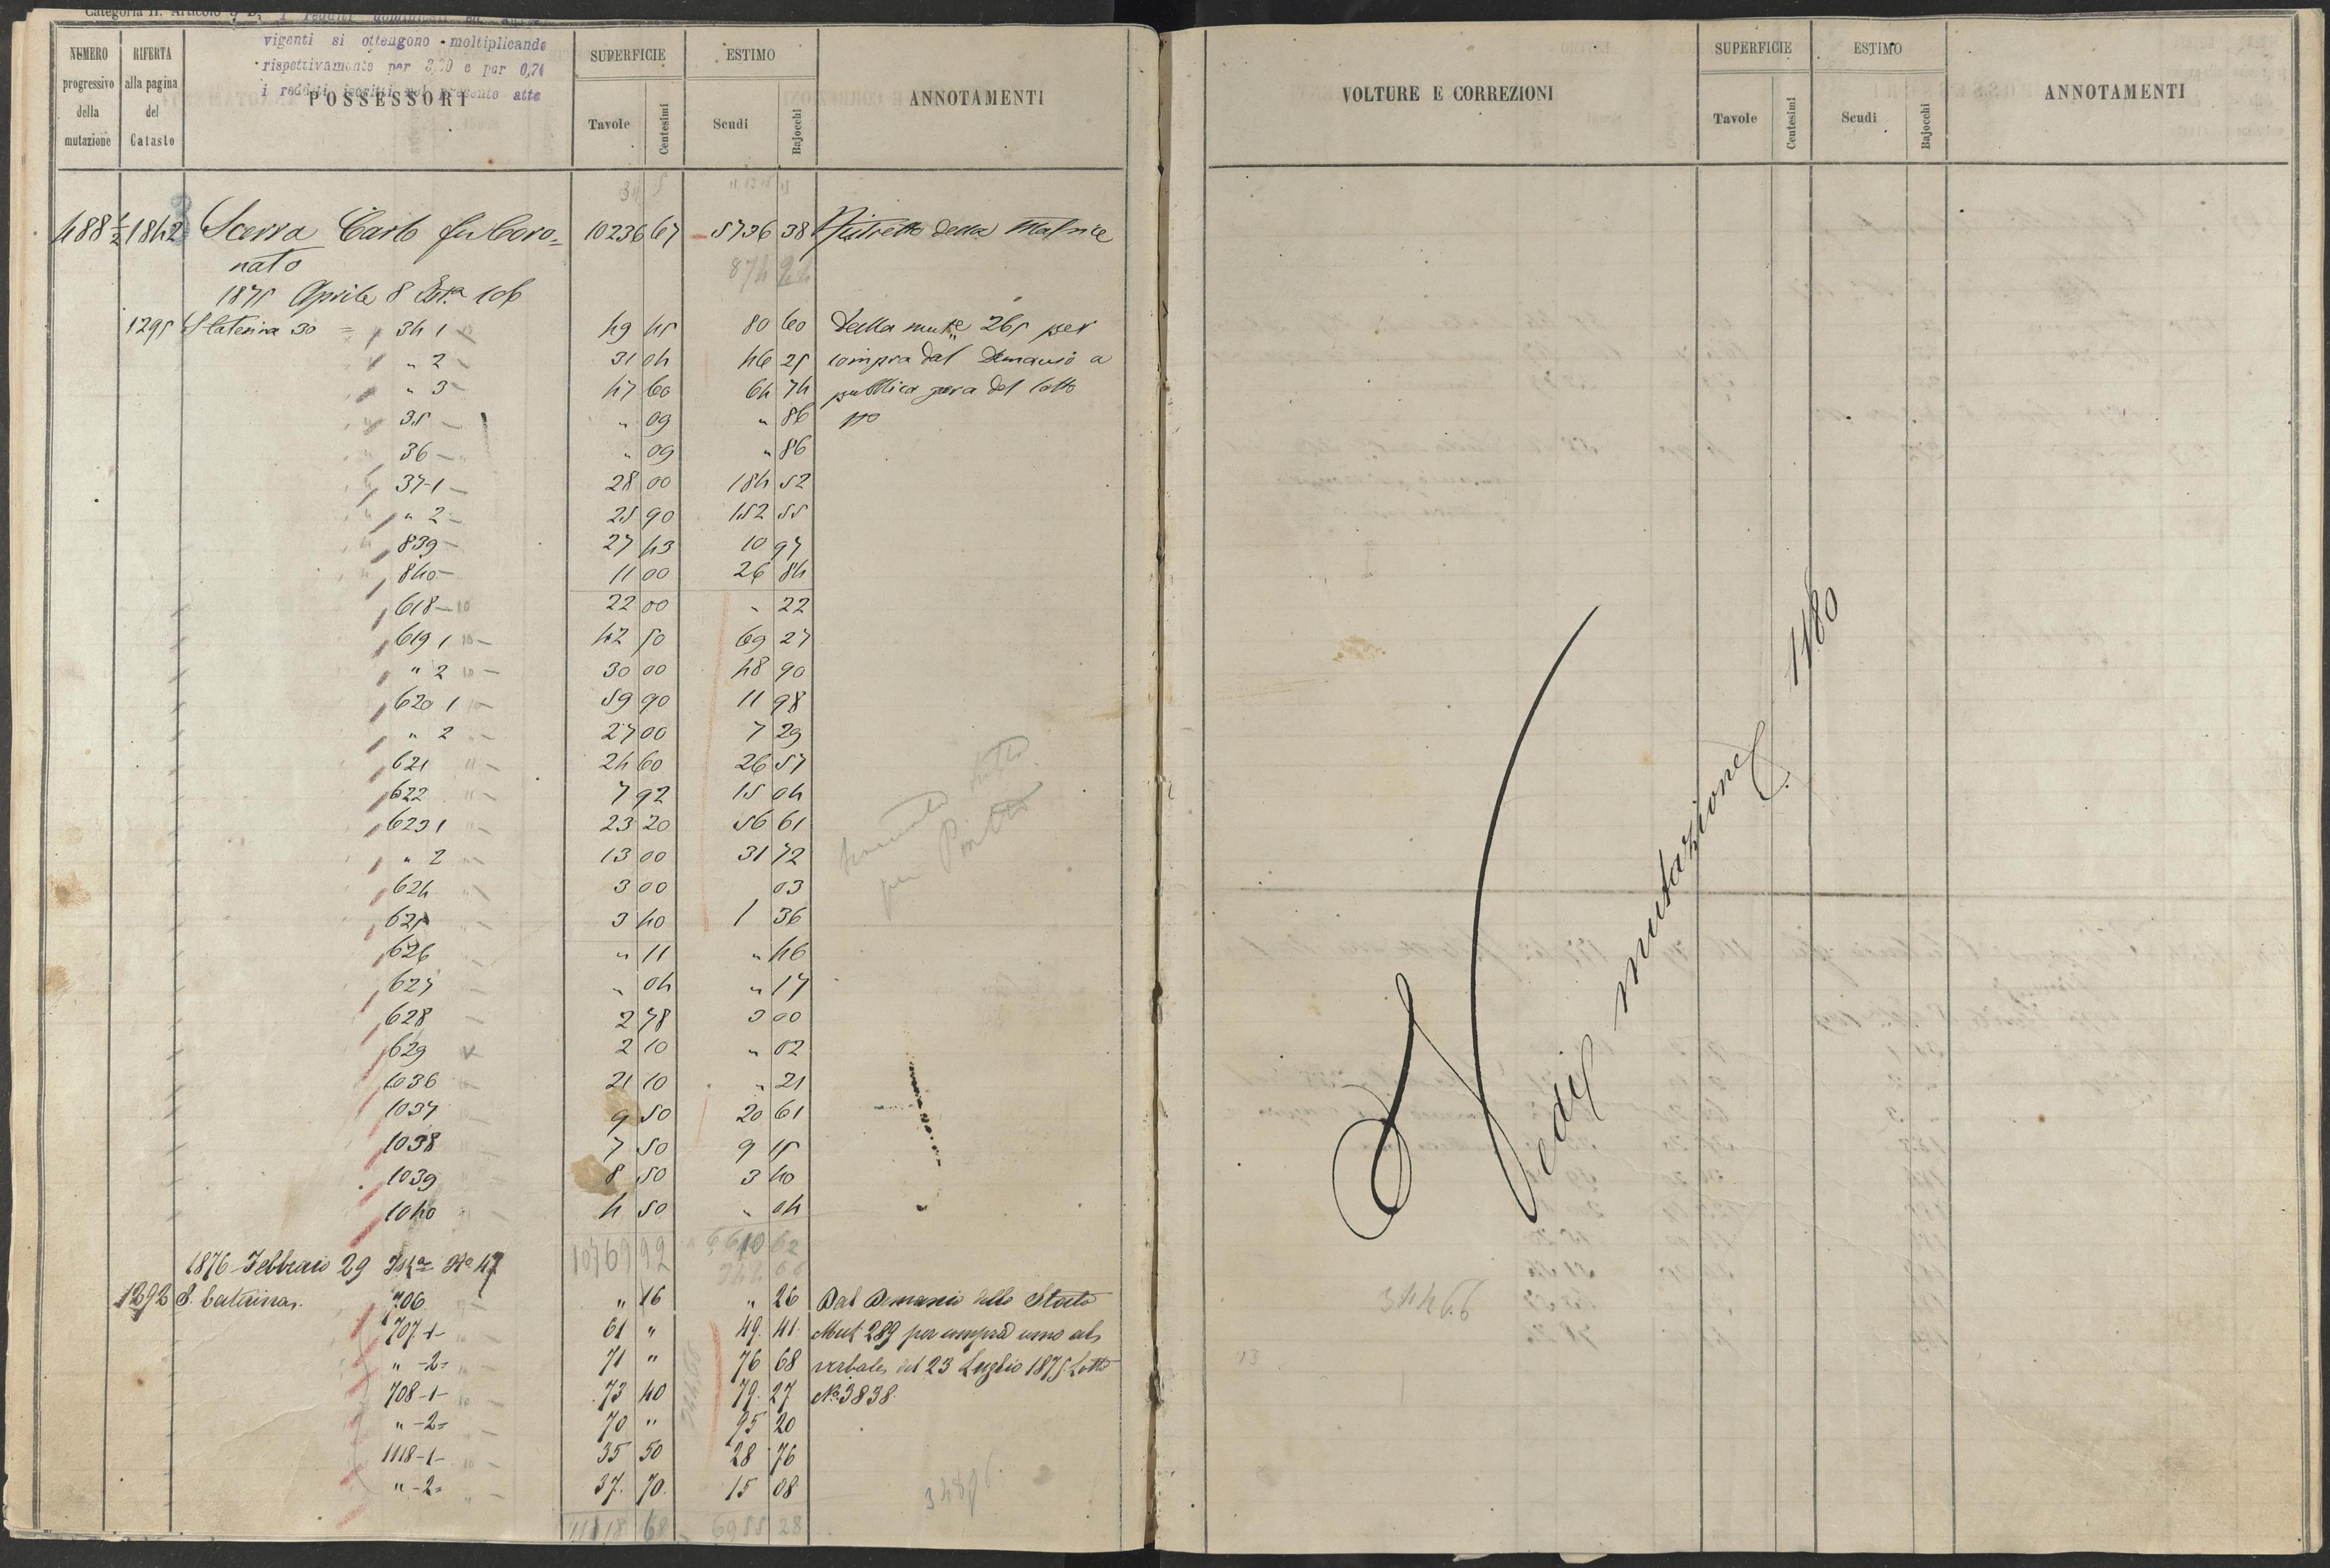 Categoria II. Articolo
vigenti si ottengono moltiplicando
rispettivamente per 3,20 e per 0,74
i redditi iscritti nel presente atto
NUMERO progressivo della mutazione
RIFERTA alla pagina del Catasto
POSSESSORI
SUPERFICIE
Tavole Centesimi
ESTIMO
Scudi Bajocchi
ANNOTAMENTI
488 1/2 1842 Scerra Carlo fu Coro= 10236 67 5736 38 Ristretto della Matrice
nato 874 24
1875 Aprile 8 106
1295 S Caterina 30 = 34 1 49 45 80 60 Dalla mut.e 265 per
" 2 31 04 46 25 compra dal Demanio a
" 3 47 60 64 74 pubblica gara del lotto
35 " 09 " 86
36 " 09 " 86
37-1 28 00 184 52
" 2 25 90 152 55
839 27 43 10 97
840 11 00 26 84
618 10 22 00 " 22
619 1 10 42 50 69 27
" 2 10 30 00 48 90
620 1 10 59 90 11 98
" 2 27 00 7 29
621 " 24 60 26 57
622 " 7 92 15 04
623 1 23 20 56 61
" 2 13 00 31 72
624 3 00 03
625 3 40 1 36
626 " 11 " 46
627 " 04 " 17
628 2 78 3 00
629 2 10 " 02
1036 21 10 " 21
1037 9 50 20 61
1038 7 50 9 15
1039 8 50 3 40
1040 4 50 " 04
10769 92 6610 62
344 66
1876 Febbraio 29 No 47
1292 S. Caterina. 706 " 16 " 26 Dal Demanio dello Stato
707-1- 61 " 49. 41. Mut. 289 per compra come al
" -2= 71 " 76 68 verbale del 23 Luglio 1875 Lotto
708-1- 73 40 79. 27 No. 3838.
" -2= 70 " 95 20
1118-1- 35 50 28 76
" -2= 37. 70. 15 08
11118 68 6955 28
VOLTURE E CORREZIONI
SUPERFICIE
Tavole Centesimi
ESTIMO
Scudi Bajocchi
ANNOTAMENTI
Vedi mutazione 1180
344 66
13